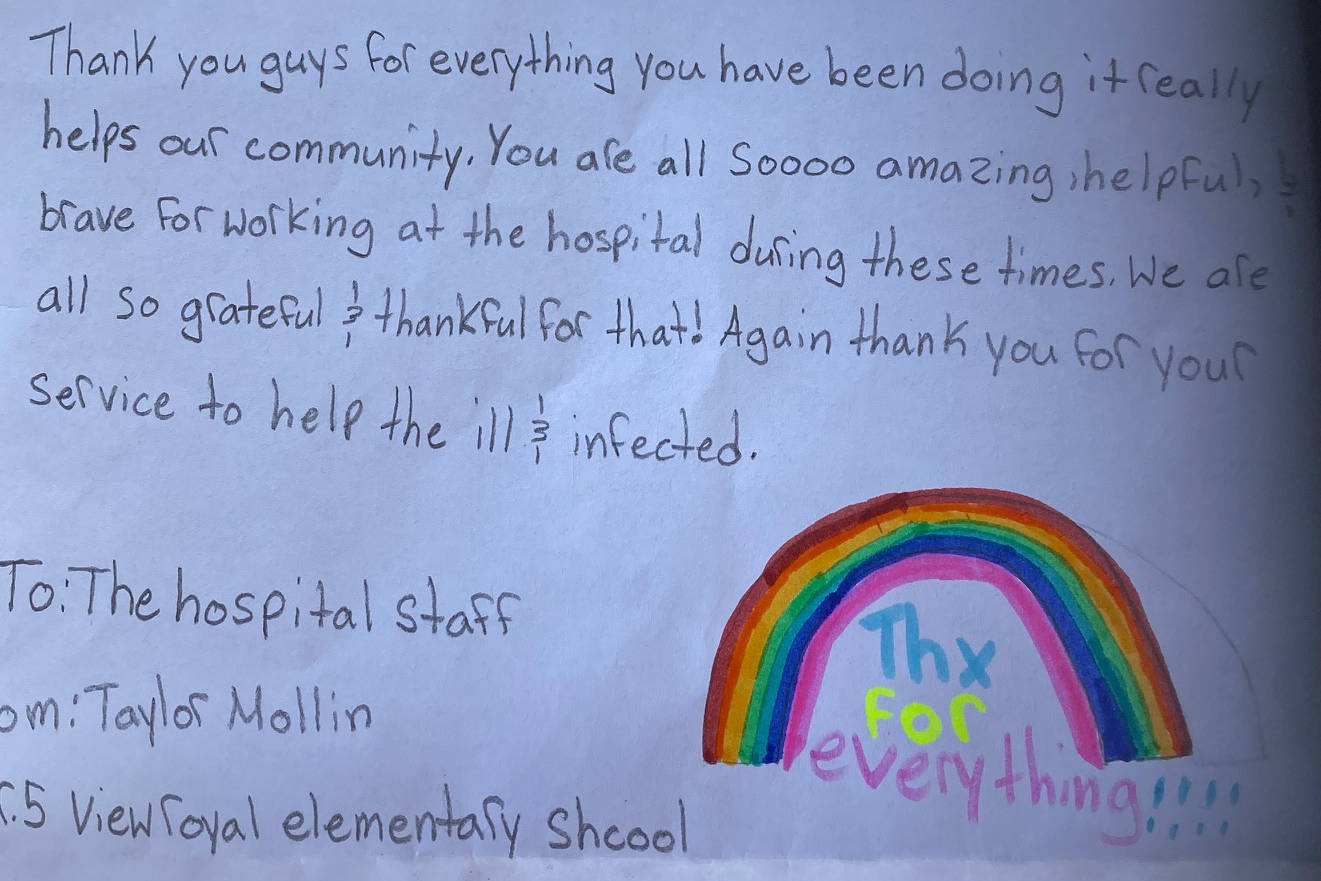 Thank you guys for everything you have been doing it really
helps our community. You are all Soooo amazing, helpful, &
brave for working at the hospital during these times. We are
all so grateful & thankful for that! Again thank you for your
service to help the ill & infected.
To: The hospital staff
om: Taylor Mollin
r.5 View royal elementary Shcool
Thx
for
everything!!!!!